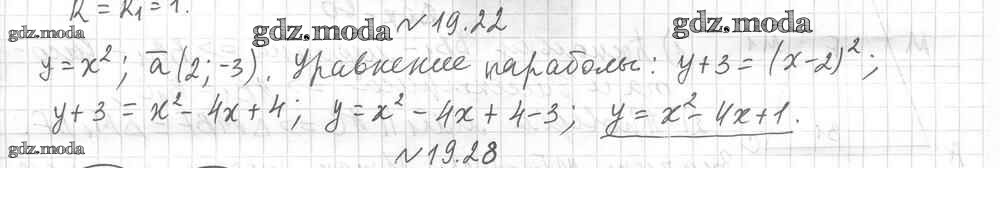 R = R₁ = 1.
gdz.moda gdz.moda №19.22 gdz.moda
y = x²; a̅ (2; -3). Уравнение параболы: y+3 = (x-2)²;
y+3 = x² - 4x + 4; y = x² - 4x + 4 - 3; y = x² - 4x + 1.
gdz.moda №19.28